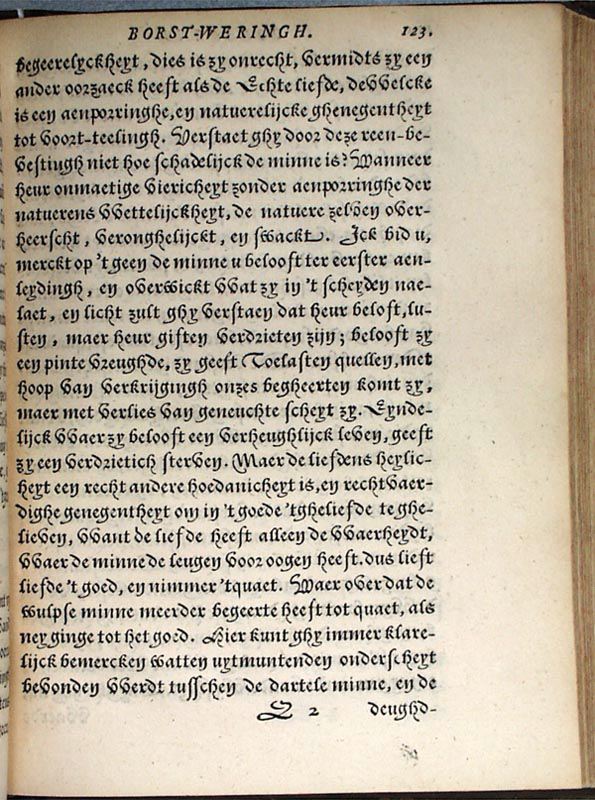 BORST-WERINGH. 123.
begeerelyckheyt, dies is zy onrecht, vermidts zy een
ander oorzaeck heeft als de Echte liefde, de VVelcke
is een aenporringhe, en natuerelijcke ghenegentheyt
tot voort-teelingh. Verstaet ghy door deze reen-be-
vestingh niet hoe schadelijck de minne is? Wanneer
heur onmaetige viericheyt zonder aenporringhe der
natuerens VVettelijckheyt, de natuere zelven over-
heerscht, veronghelijckt, en swackt. Ick bid u,
merckt op 't geen de minne u belooft ter eerster aen-
leydingh, en overwickt VVat zy in 't scheyden nae-
laet, en licht zult ghy verstaen dat heur beloft, lu-
sten, maer heur giften verdrieten zijn; belooft zy
een pinte vreughde, zy geeft Toelasten quellen, met
hoop van verkrijgingh onzes begheerten komt zy,
maer met verlies van geneuchte scheyt zy. Eynde-
lijck VVaer zy belooft een verheughlijck leven, geeft
zy een verdrietich sterven. Maer de liefdens heylic-
heyt een recht andere hoedanicheyt is, en rechtvaer-
dighe genegentheyt om in 't goede 'tgheliefde te ghe-
lieven, VVant de liefde heeft alleen de VVaerheydt,
VVaer de minne de leugen voor oogen heeft. dus lieft
liefde 't goed, en nimmer 'tquaet. Waer over dat de
wulpse minne meerder begeerte heeft tot quaet, als
neyginge tot het goed. Hier kunt ghy immer klare-
lijck bemercken watten uytmuntenden onderscheyt
bevonden VVerdt tusschen de dartele minne, en de
Q 2 deughd-